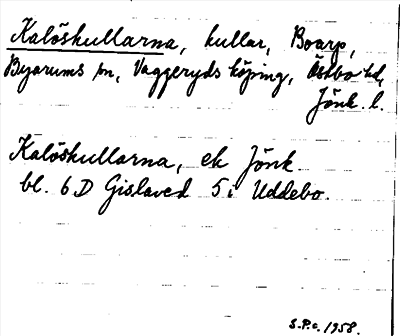 Kalöskullarna, kullar, Boarp,
Byarums sn, Vaggeryds köping, Östbo hd,
Jönk. l.
Kalöskullarna, ek Jönk
bl. 6D Gislaved 5i Uddebo.
S.P.o. 1958.